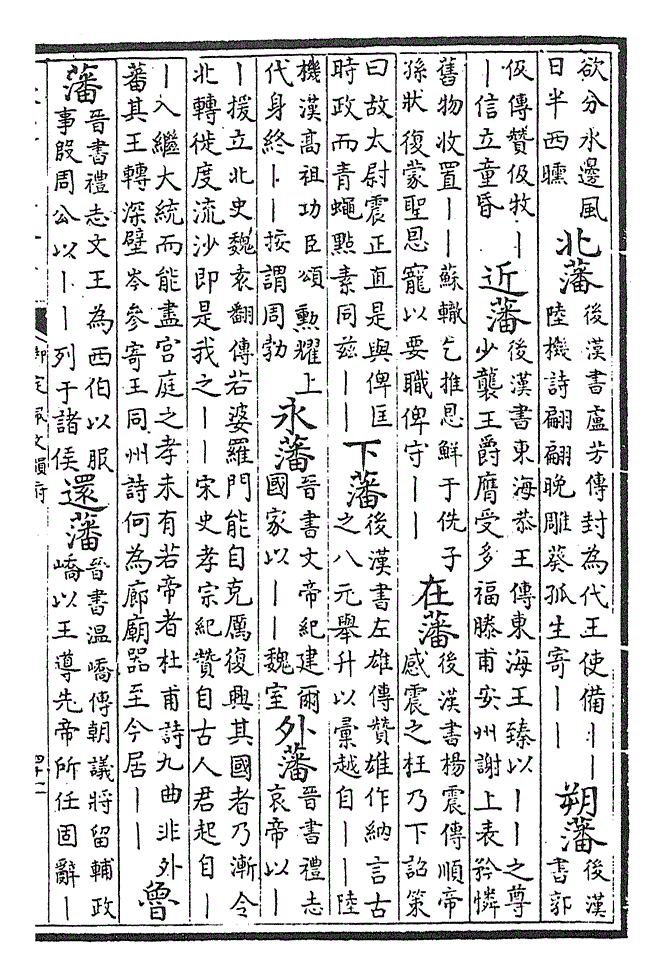 欲分水邊風
日半西曛
北藩
後漢書盧芳傳封為代王使備丨丨
陸機詩翩翩晚雕葵孤生寄丨丨
朔藩
後漢
書郭
伋傳贊伋牧丨
丨信立童昏
近藩
後漢書東海恭王傳東海王臻以丨丨之尊
少襲王爵膺受多福滕甫安州謝上表矜憐
舊物收置丨丨蘇轍乞推恩鮮于侁子
孫狀復蒙聖恩寵以要職俾守丨丨
在藩
後漢書楊震傳順帝
感震之枉乃下詔策
曰故太尉震正直是與俾匡
時政而青蠅點素同兹丨丨
下藩
後漢書左雄傳贊雄作納言古
之八元舉升以彙越自丨丨陸
機漢高祖功臣頌勲耀上
代身終丨丨按謂周勃
永藩
晉書文帝紀建爾
國家以丨丨魏室
外藩
晉書禮志
哀帝以丨
丨援立北史魏袁翻傳若婆羅門能自克厲復興其國者乃漸令
北轉徙度流沙即是我之丨丨宋史孝宗紀贊自古人君起自丨
丨入繼大統而能盡宮庭之孝未有若帝者杜甫詩九曲非外
蕃其王轉深壁岑參寄王同州詩何為廊廟器至今居丨丨
魯
藩
晉書禮志文王為西伯以服
事殷周公以丨丨列于諸侯
還藩
晉書温嶠傳朝議將留輔政
嶠以王導先帝所任固辭丨